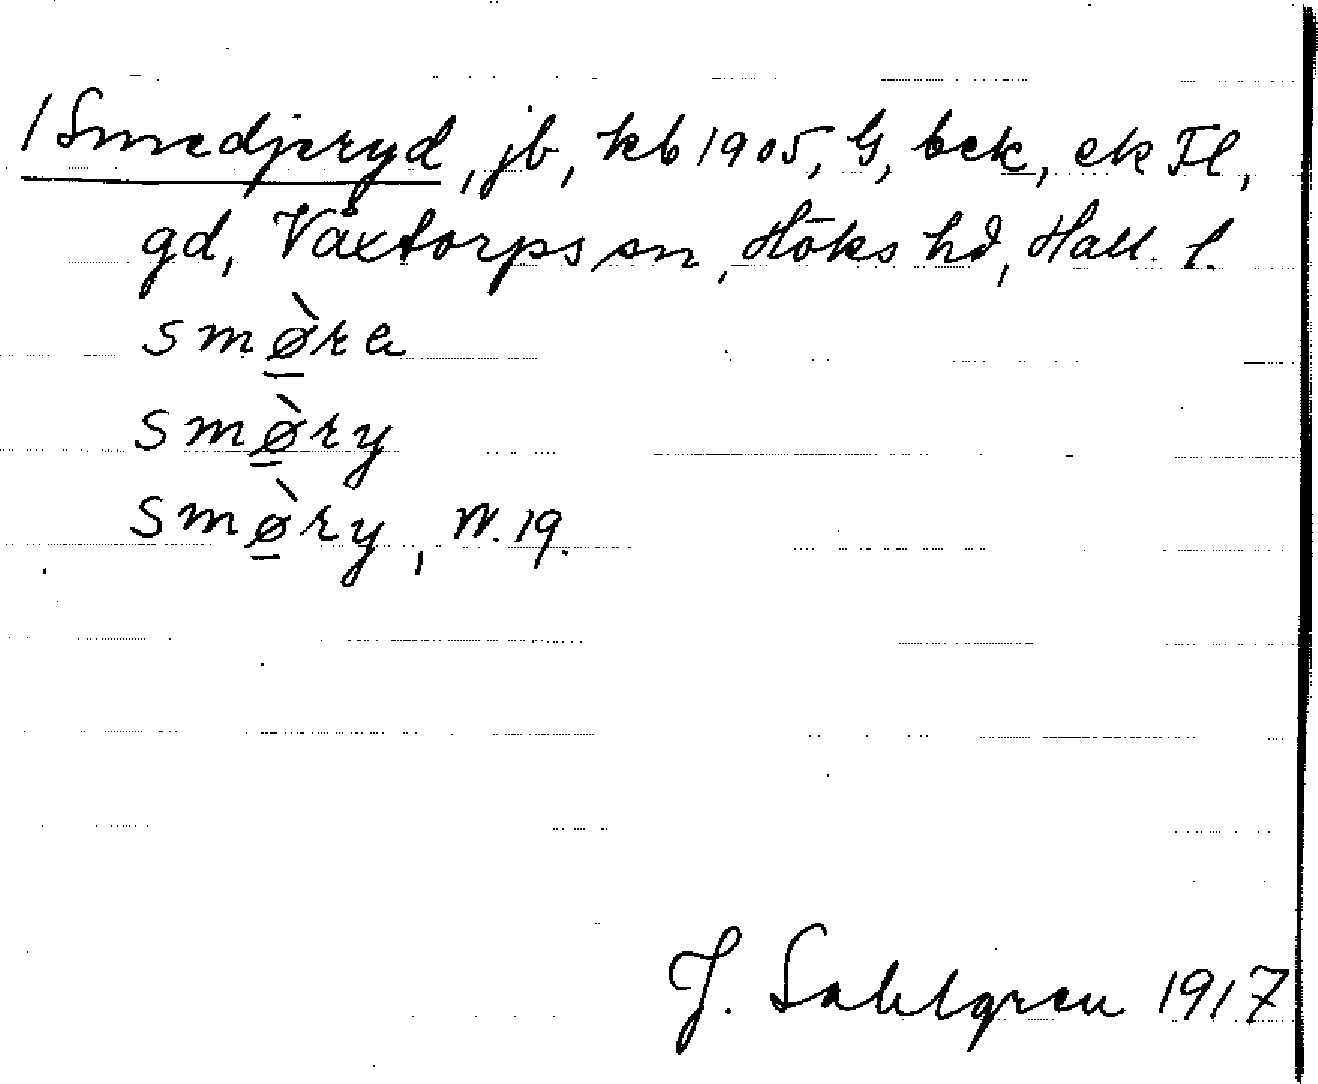 /Smedjeryd, jb, kb 1905, G, bek, ek Fl,
gd, Våxtorps sn, Höks hd, Hall. l.
smø̀ra
smø̀ry
smø̀ry, N. 19.
J. Sahlgren 1917